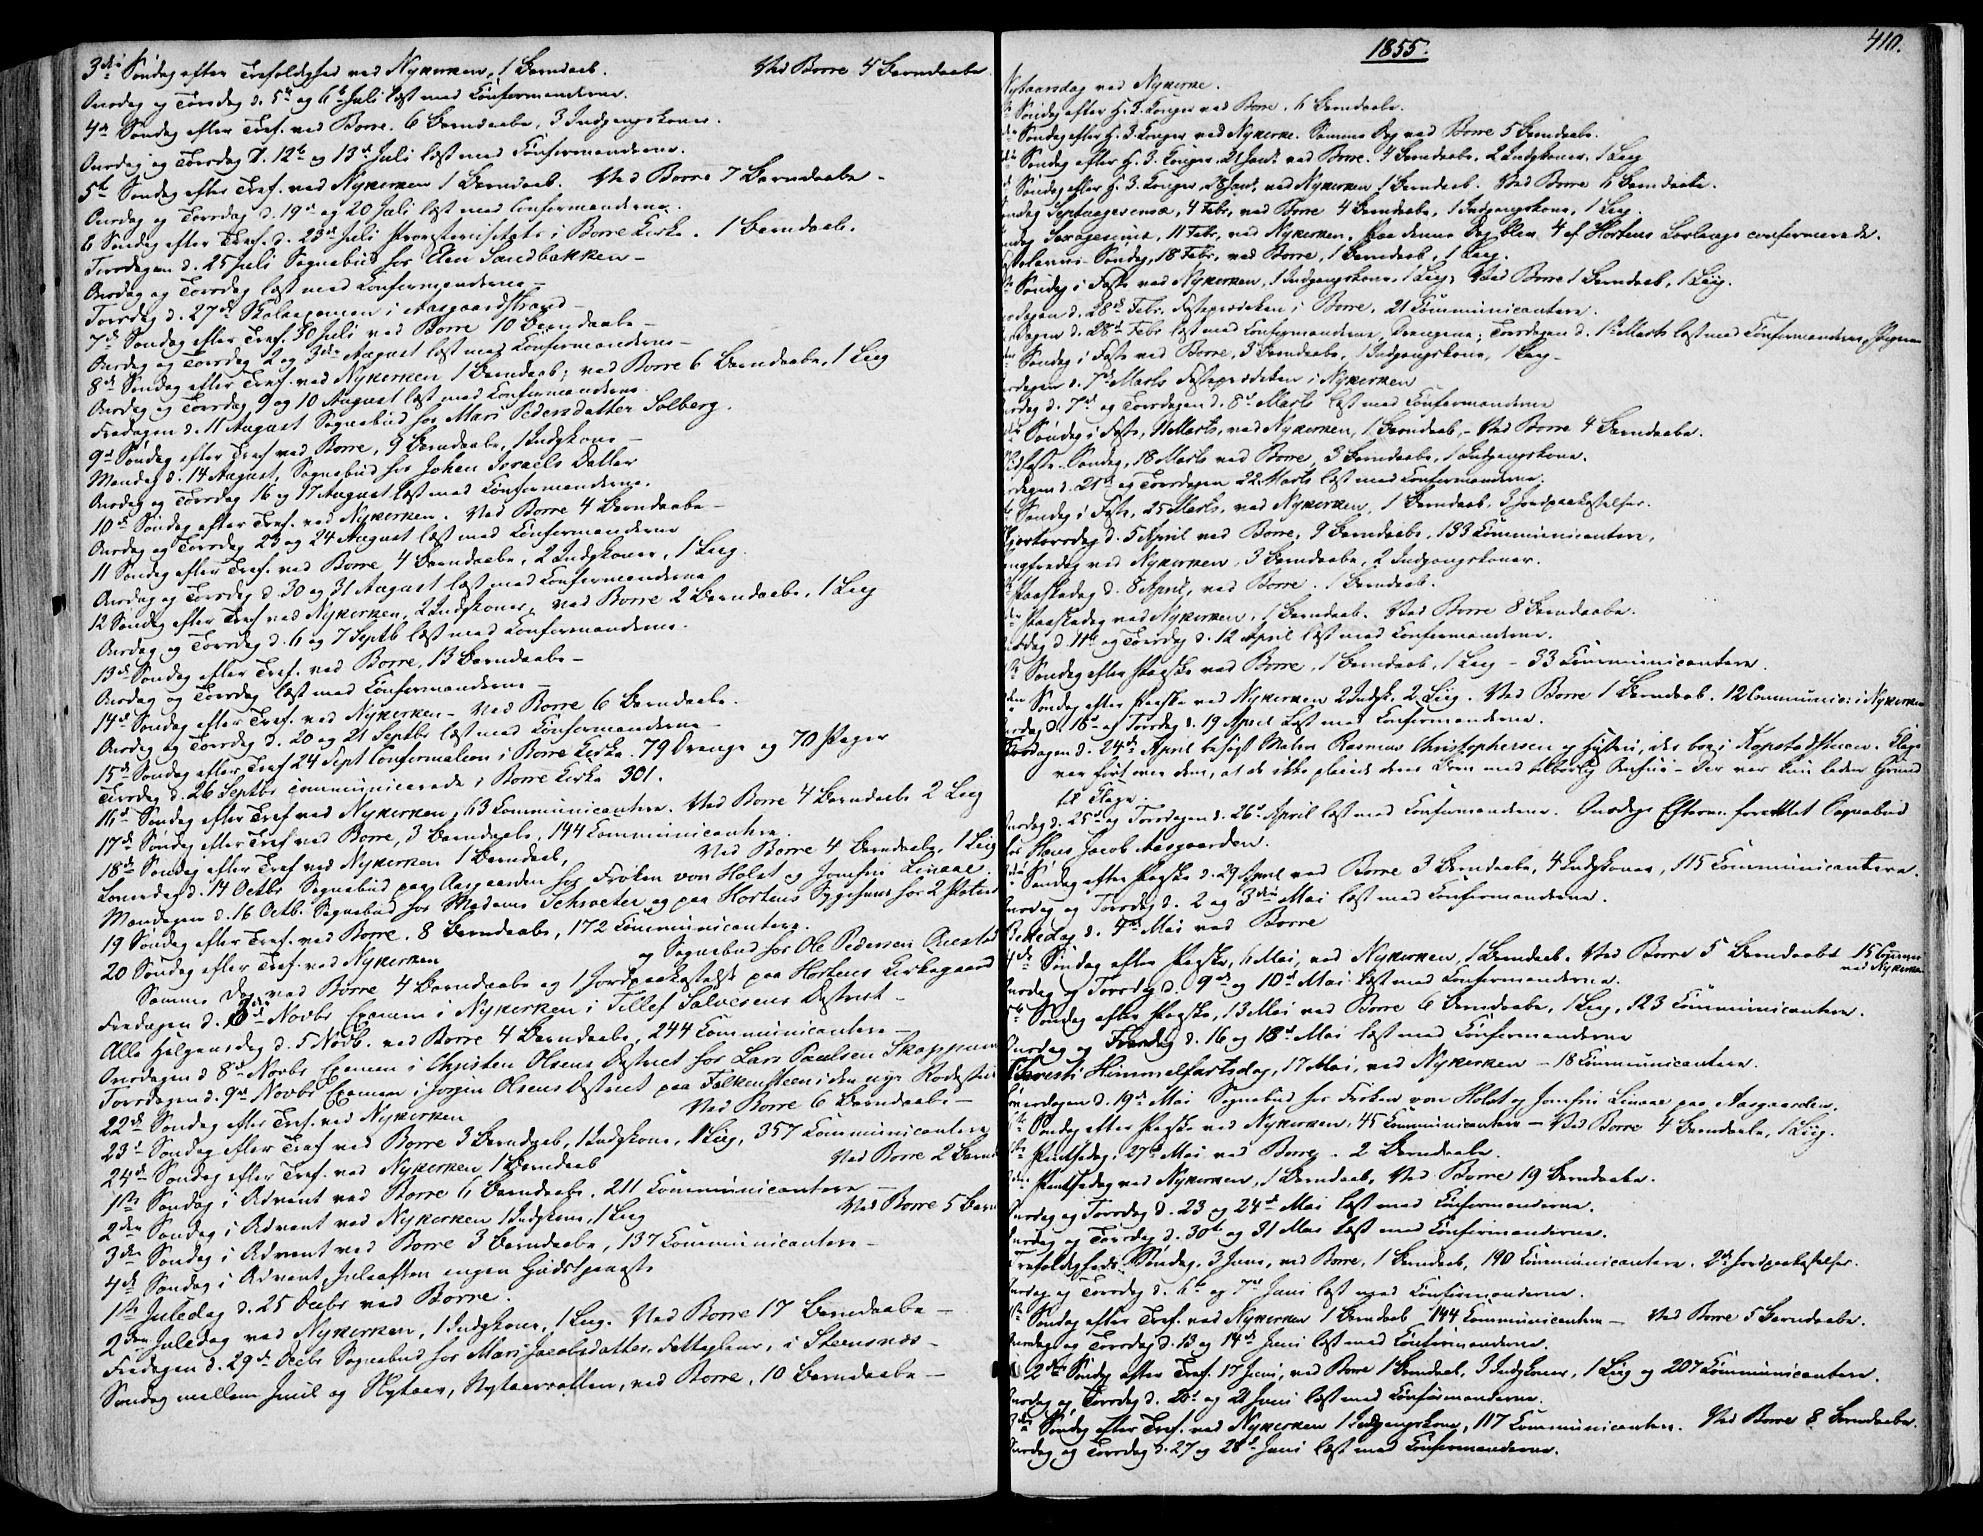 3die Søndag efter Trefoldighed ved Nykirken, 1 Barndaab. Ved Borre 5 Barndaabe
Onsdag og Torsdag d. 5te og 6te Juli læst med Confirmanderne.
4de Søndag efter Tref. ved Borre. 6 Barndaabe, 3 Indgangskoner.
Onsdag og Torsdag d. 12te og 13de Juli læst med Confirmanderne.
5te Søndag efter Tref. ved Nykirken 1 Barndaab. Ved Borre 7 Barndaabe -
Onsdag og Torsdag d. 19de og 20 Juli læst med Confirmanderne.
6 Søndag efter Tref. d. 23de Juli Provstevisitats i Borre Kirke. 1 Barndaab.
Tirsdagen d. 25 Juli Sognebud for Elen Sandbakken -
Onsdag og Torsdag læst med Confirmanderne -
Torsdag d. 27de Skoleexamen i Aasgaardstrand -
7de Søndag efter Tref. 30 Juli ved Borre 10 Barndaabe -
Onsdag og Torsdag 2 og 3die August læst med Confirmanderne -
8de Søndag efter Tref. ved Nykirken 1 Barndaab; ved Borre 6 Barndaabe, 1 Liig
Onsdag og Torsdag 9 og 10 August læst med Confirmanderne.
Fredagen d. 11 August Sognebud for Mari Pedersdatter Solberg.
9de Søndag efter Tref ved Borre, 9 Barndaabe, 1 Indgkone -
Mandag d. 14 August, Sognebud for Johan Israels Datter
Onsdag og Torsdag 16 og 17 August læst med Confirmanderne.
10de Søndag efter Tref. ved Nykirken. Ved Borre 4 Barndaabe -
Onsdag og Torsdag 23 og 24 August læst med Confirmanderne
11 Søndag efter Tref. ved Borre, 4 Barndaabe, 2 Indgkoner, 1 Liig.
Onsdag og Torsdag d. 30 og 31 August læst med Confirmanderne
12 Søndag efter Tref ved Nykirken, 2 Indgkoner, ved Borre 2 Barndaabe, 1 Liig
Onsdag og Torsdag d. 6 og 7 Septb læst med Confirmanderne.
13de Søndag efter Tref. ved Borre, 13 Barndaabe -
Onsdag og Torsdag læst med Confirmanderne -
14de Søndag efter Tref. ved Nykirken - Ved Borre 6 Barndaabe.
Onsdag og Torsdag d. 20 og 21 Septbr læst med Confirmanderne -
15de Søndag efter Tref 24 Sept Confirmation i Borre Kirke. 79 Drenge og 70 Piger
Tirsdag d. 26 Septbr communicerede i Borre Kirke 301.
16de Søndag efter Tref ved Nykirken, 63 Communicantere. Ved Borre 4 Barndaabe 2 Liig
17de Søndag efter Tref ved Borre, 3 Barndaabe, 144 Communicantere.
18de Søndag efter Tref ved Nykirken 1 Barndaab, Ved Borre 4 Barndaabe, 1 Liig
Løverdag d. 14 Octbr Sognebud paa Aasgaarden for Frøken von Holst og Jomfru Linaae.
Mandagen d. 16 Octb. Sognebud for Madame Schrøeter og paa Hortens Sygehuus for 2
19 Søndag efter Tref. ved Borre. 8 Barndaabe, 172 Communicantere.
20 Søndag efter Tref. ved Nykirken og Sognebud for Ole Pedersen
Samme Dag ved Borre 4 Barndaabe og 1 Jordpaakastelse paa Hortens Kirkegaard
Fredagen d. 3die Novbr Examen i Nykirken i Tellef Salvesens District -
Alle Helgensdag d. 5 Novb. ved Borre 4 Barndaabe, 244 Communicantere -
Onsdagen d 8de Novbr Examen i Christen Olsens District for Lars Paulsen Skoppum
Torsdagen d. 9de Novbr Examen i Jørgen Olsens District paa Falkensteen i den nye Rodestue
22de Søndag efter Tref. ved Nykirken Ved Borre 6 Barndaabe -
23de Søndag efter Tref ved Borre 3 Barndaab, 1 Indgkone, 1 Liig, 357 Communicantere
24de Søndag efter Tref. ved Nykirken 1 Barndaab Ved Borre 2 Barnd
1ste Søndag i Advent ved Borre 6 Barndaabe. 211 Communicantere -
2den Søndag i Advent ved Nykirken 1 Indgkone, 1 Liig Ved Borre 5 Barn
3die Søndag i Advent ved Borre 3 Barndaabe, 137 Communicantere -
4de Søndag i Advent, Juleaften ingen Gudstjeneste
1ste Juledag d. 25 Decbr ved Borre.
2den Juledag ved Nykirken, 1 Indgkone, 1 Liig. Ved Borre 17 Barndaabe -
Fredagen d. 29de Decbr Sognebud for Mari Jacobsdatter, Fattiglem, i Steensnæs -
Søndag mellem Juul og Nytaar, Nytaarsaften, ved Borre, 10 Barndaabe -
1855.
410.
Nytaarsdag ved Nykirke.
Søndag efter H. 3 Konger ved Borre. 6 Barndaabe.
Søndag efter H. 3 Konger ved Nykirke. Samme Dag ved Borre 5 Barndaabe.
Søndag efter H. 3. Konger, 21 Jan. ved Borre. 4 Barndaabe, 2 Indgkoner, 1 Liig
Søndag efter H. 3. Konger, 28 Jan. ved Nykirken 1 Barndaab. Ved Borre 6 Barndaabe.
Søndag Septuagesima, 4 Febr, ved Borre 4 Barndaabe, 1 Indgangskone, 1 Liig.
Søndag Sexagesima, 11 Febr, ved Nykirken, paa denne Dag blev 4 af Hortens Lærlinge confirmerede.
Fastelavns-Søndag, 18 Febr, ved Borre, 1 Barndaab, 1 Liig.
Søndag i Faste ved Nykirken, 1 Indgangskone, 1 Liig, Ved Borre 1 Barndaab, 1 Liig.
Onsdagen d. 28de Febr, Fasteprædiken i Borre, 21 Communicantere.
Onsdagen d. 28de Febr læst med Confirmanderne, Drengene; Torsdagen d. 1ste Marts læst med Confirmanderne, Pigerne
Søndag i Faste ved Borre, 3 Barndaabe, 1 Indgangskone, 1 Liig -
Onsdagen d. 7de Marts Fasteprædiken i Nykirken
Onsdag d. 7de og Torsdagen d. 8de Marts læst med Confirmanderne
Søndag i Faste, 11 Marts, ved Nykirken, 1 Barndaab, - Ved Borre 4 Barndaabe.
Midfaste-Søndag, 18 Marts ved Borre, 3 Barndaabe, 1 Indgangskone.
Onsdagen d. 21de og Torsdagen 22 Marts læst med Confirmanderne.
Søndag i Faste, 25 Marts, ved Nykirken, 1 Barndaab, 3 Jordpaakastelser.
Skjærtorsdag d. 5 April ved Borre, 9 Barndaabe, 133 Communicantere,
Langfredag ved Nykirken, 3 Barndaabe, 2 Indgangskoner.
Paaskedag d. 8 April, ved Borre. 1 Barndaab.
Paaskedag ved Nykirken, 1 Barndaab. Ved Borre 8 Barndaabe.
Onsdag d. 11te og Torsdag d. 12 April læst med Confirmanderne.
Søndag efter Paaske ved Borre, 1 Barndaab, 1 Liig - 33 Communicantere.
Søndag efter Paaske ved Nykirken 2 Indgk. 2 Liig. Ved Borre 1 Barndaab. 12 Communic: i Nykirken
Onsdag d. 18de og Torsdag d. 19 April læst med Confirmanderne.
Tirsdagen d. 24de April besøgt Maler Rasmus Christophersen og Hustru, der bor i Kopstadstuen. Klage
var ført over dem, at de ikke pleiede deres Barn med tilbørlig Omhu - Der var kun liden Grund
til Klage.
Onsdag d. 25de og Torsdagen d. 26de April læst med Confirmanderne. Onsdags Efterm. forrettet Sognebud
for Hans Jacob Aasgaarden.
Søndag efter Paaske d. 29 April ved Borre 3 Barndaabe, 4 Indgkoner, 115 Communicantere.
Onsdag og Torsdag d. 2 og 3die Mai læst med Confirmanderne.
Bededag d. 4de Mai ved Borre
Søndag efter Paaske, 6 Mai, ved Nykirken, 1 Barndaab. Ved Borre 5 Barndaabe 15 Comm.
ved Nykirken
Onsdag og Torsdag d. 9de og 10de Mai læst med Confirmanderne.
Søndag efter Paaske, 13 Mai ved Borre 6 Barndaabe, 1 Liig, 123 Communicantere.
Onsdag og Fredag d. 16 og 18de Mai læst med Confirmanderne
Christi Himmelfartsdag, 17 Mai, ved Nykirken - 18 Communicantere.
Løverdagen d. 19de Mai Sognebud for Frøken von Holst og Jomfru Linaae paa Aasgaarden.
Søndag efter Paaske ved Nykirken, 45 Communicantere - Ved Borre 4 Barndaabe, 1 Liig.
Pintsedag, 27de Mai ved Borre. 2 Barndaabe.
Pintsedag ved Nykirken, 1 Barndaab, Ved Borre 19 Barndaabe.
Onsdag og Torsdag d. 23 og 24de Mai læst med Confirmanderne.
Onsdag og Torsdag d. 30te og 31 Mai læst med Confirmanderne.
Trefoldigheds Søndag, 3 Juni, ved Borre, 1 Barndaab, 190 Communicantere. 2de Jordpaakastelser.
Onsdag og Torsdag d. 6te og 7de Juni læst med Confirmanderne.
Søndag efter Tref. ved Nykirken 1 Barndaab 144 Communicantere - Ved Borre 5 Barndaabe.
Onsdag og Torsdag d. 13 og 14de Juni læst med Confirmanderne.
2den Søndag efter Tref. 17 Juni, ved Borre 1 Barndaab, 3 Indgkoner, 1 Liig og 207 Communicantere.
Onsdag og Torsdag d. 20de og 21 Juni læst med Confirmanderne.
3die Søndag efter Tref. ved Nykirken 1 Indgangskone, 117 Communicantere. Ved Borre 8 Barndaabe.
Onsdag og Torsdag d. 27 og 28de Juni læst med Confirmanderne.